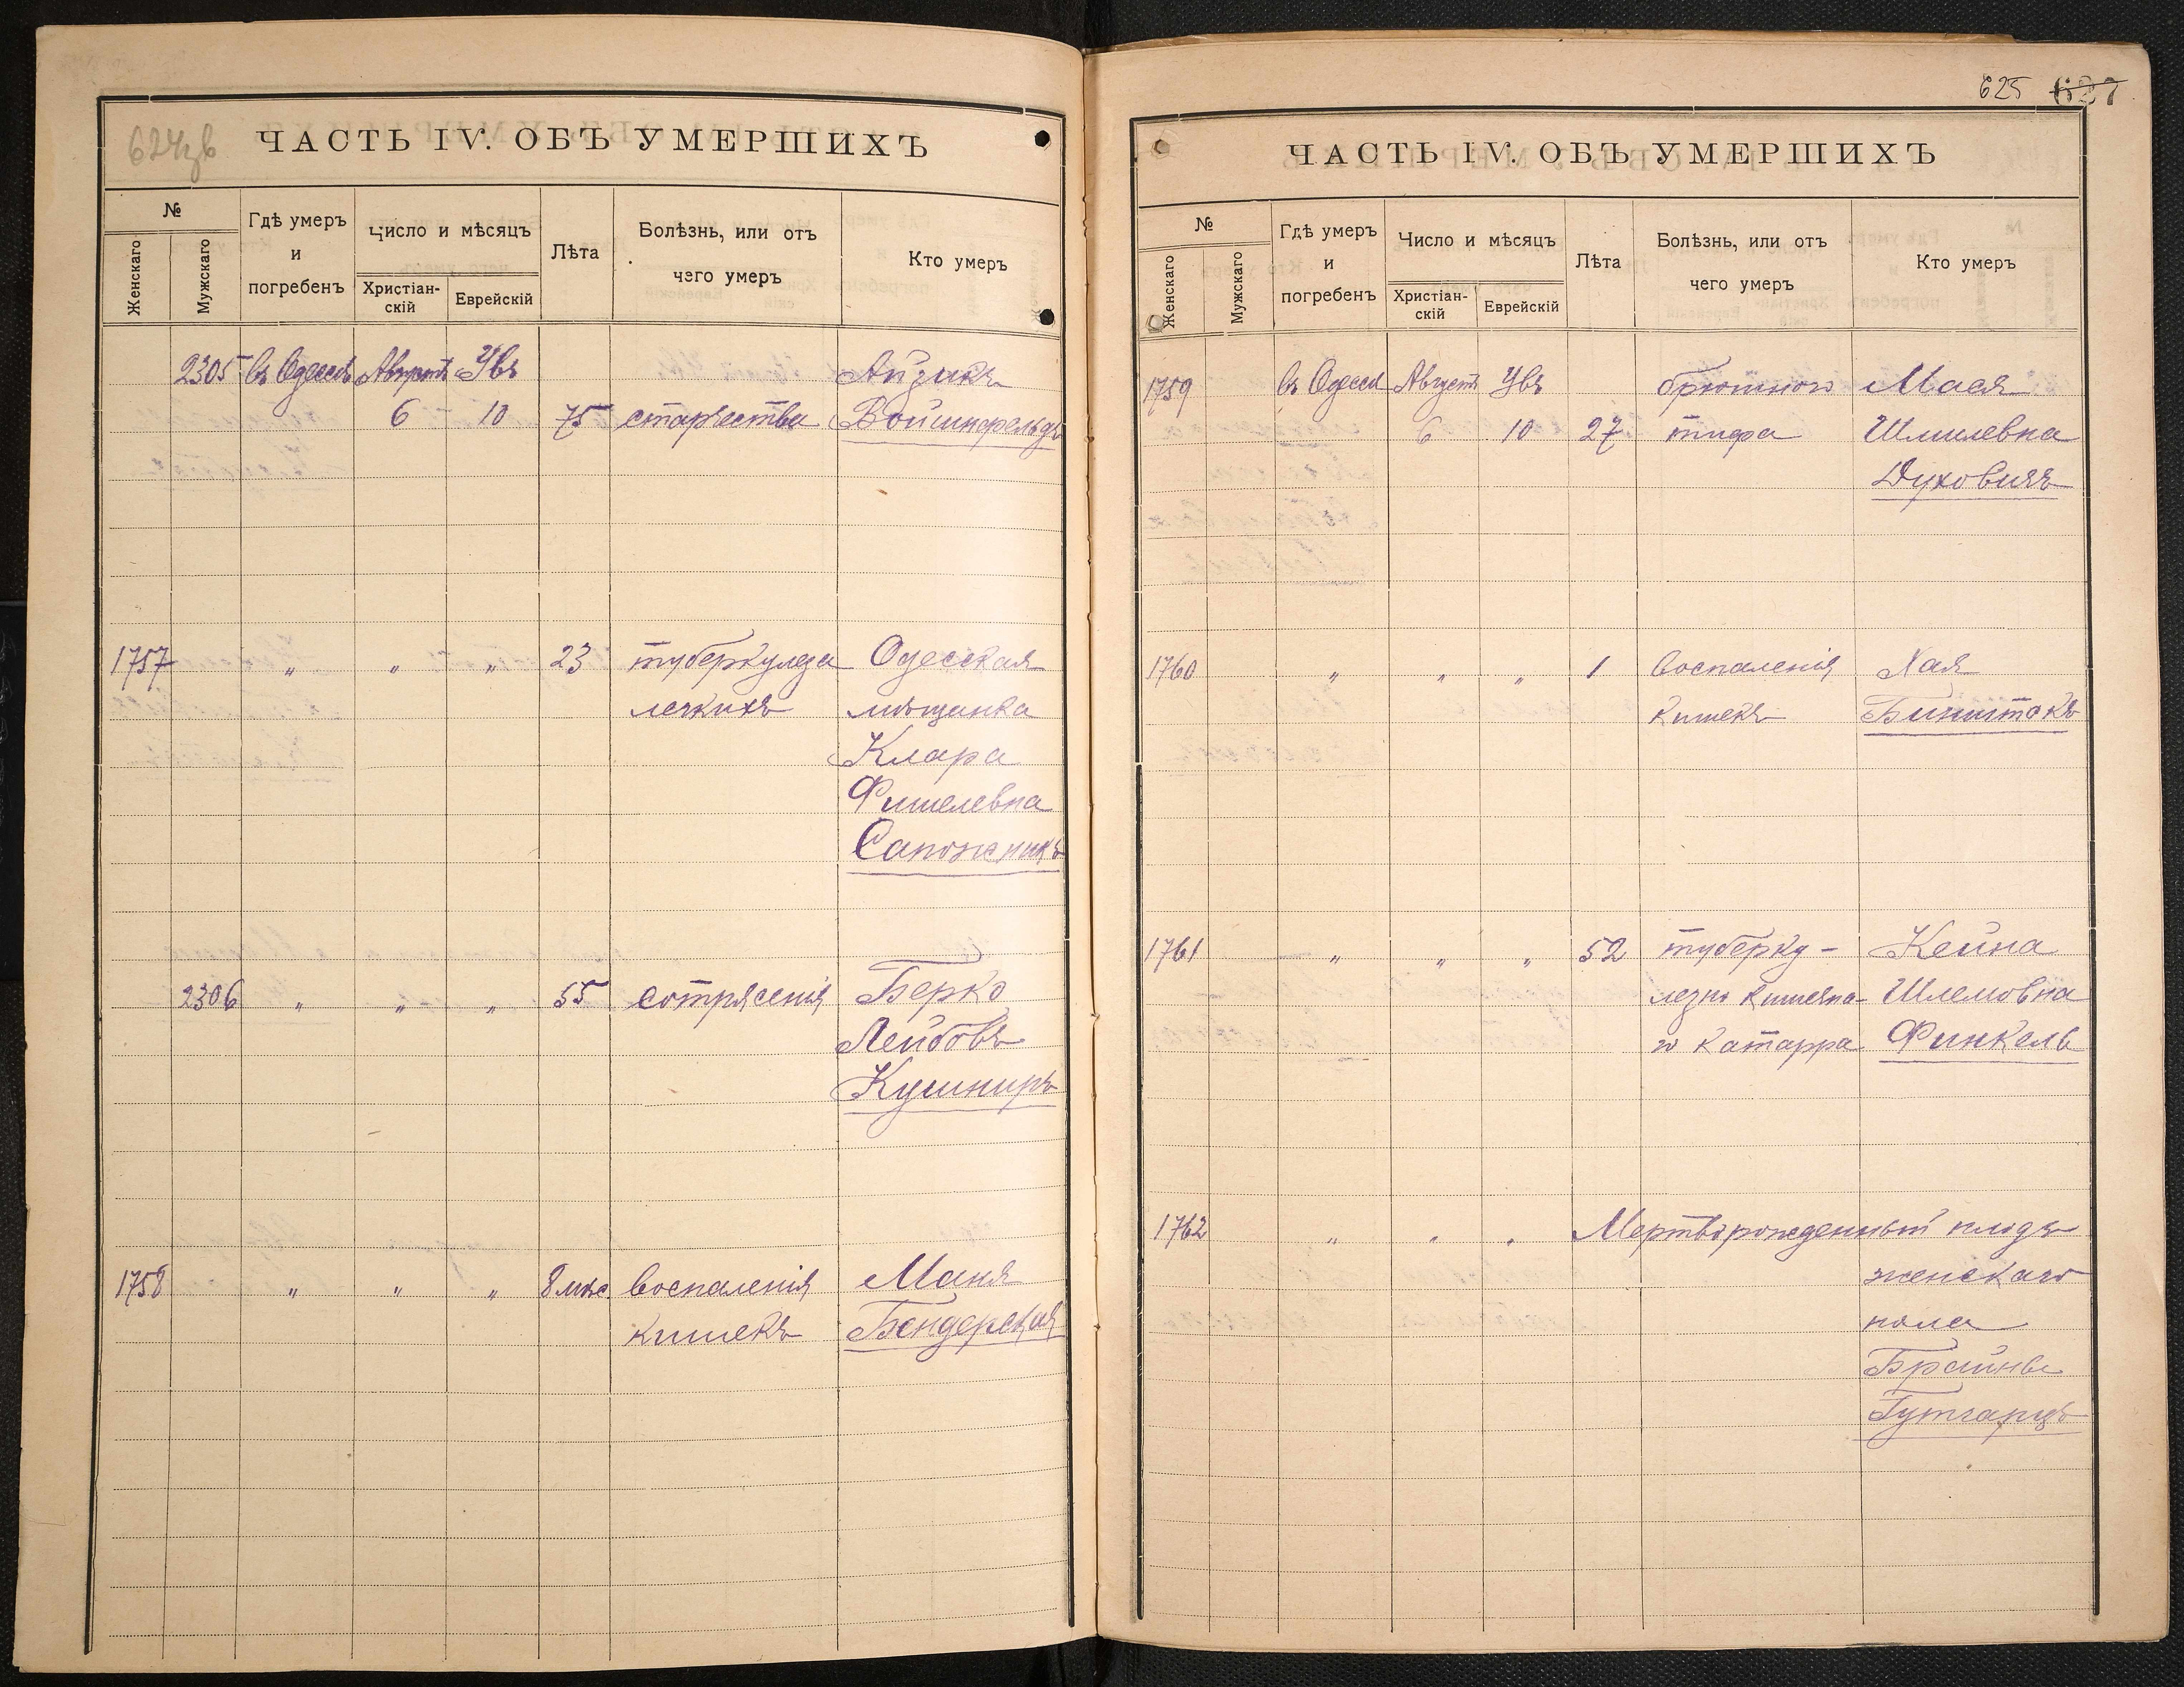 624зв
ЧАСТЬ IV. ОБЪ УМЕРШИХЪ
№
Женскаго
Мужскаго
Гдѣ умеръ
и
погребенъ
Число и мѣсяцъ
Христіан-
скій
Еврейскій
Лѣта
Болѣзнь, или отъ
чего умеръ
Кто умеръ
2305 въ Одессѣ Августъ Увъ Айзикъ
6 10 75 старчества Войшнфельдъ
1757 " " " 23 туберкулеза Одесская
легкихъ мѣщанка
Клара
Фишелевна
Сапожникъ
2306 " " " 55 сотрясенія Берко
Лейбовъ
Кушниръ
1758 " " " 8 мѣс. воспаленія Маня
кишекъ Бендерская
625 627
ЧАСТЬ IV. ОБЪ УМЕРШИХЪ
№
Женскаго
Мужскаго
Гдѣ умеръ
и
погребенъ
Число и мѣсяцъ
Христіан-
скій
Еврейскій
Лѣта
Болѣзнь, или отъ
чего умеръ
Кто умеръ
1759 въ Одессѣ Августъ Увъ брюшного Мася
6 10 27 тифа Шмилевна
Духовичъ
1760 " " " 1 воспаленія Хая
кишекъ Бинштокъ
1761 " " " 52 туберку- Кейна
лезно кишечна- Шлемовна
го катарра Финкель
1762 " " " Мертворожденный плодъ
женскаго
пола
Брайны
Гутгарцъ